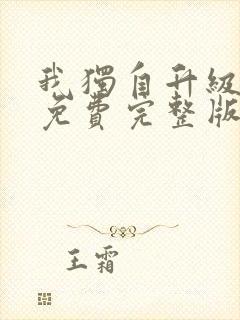 我獨自升級
免費完整版
王霜